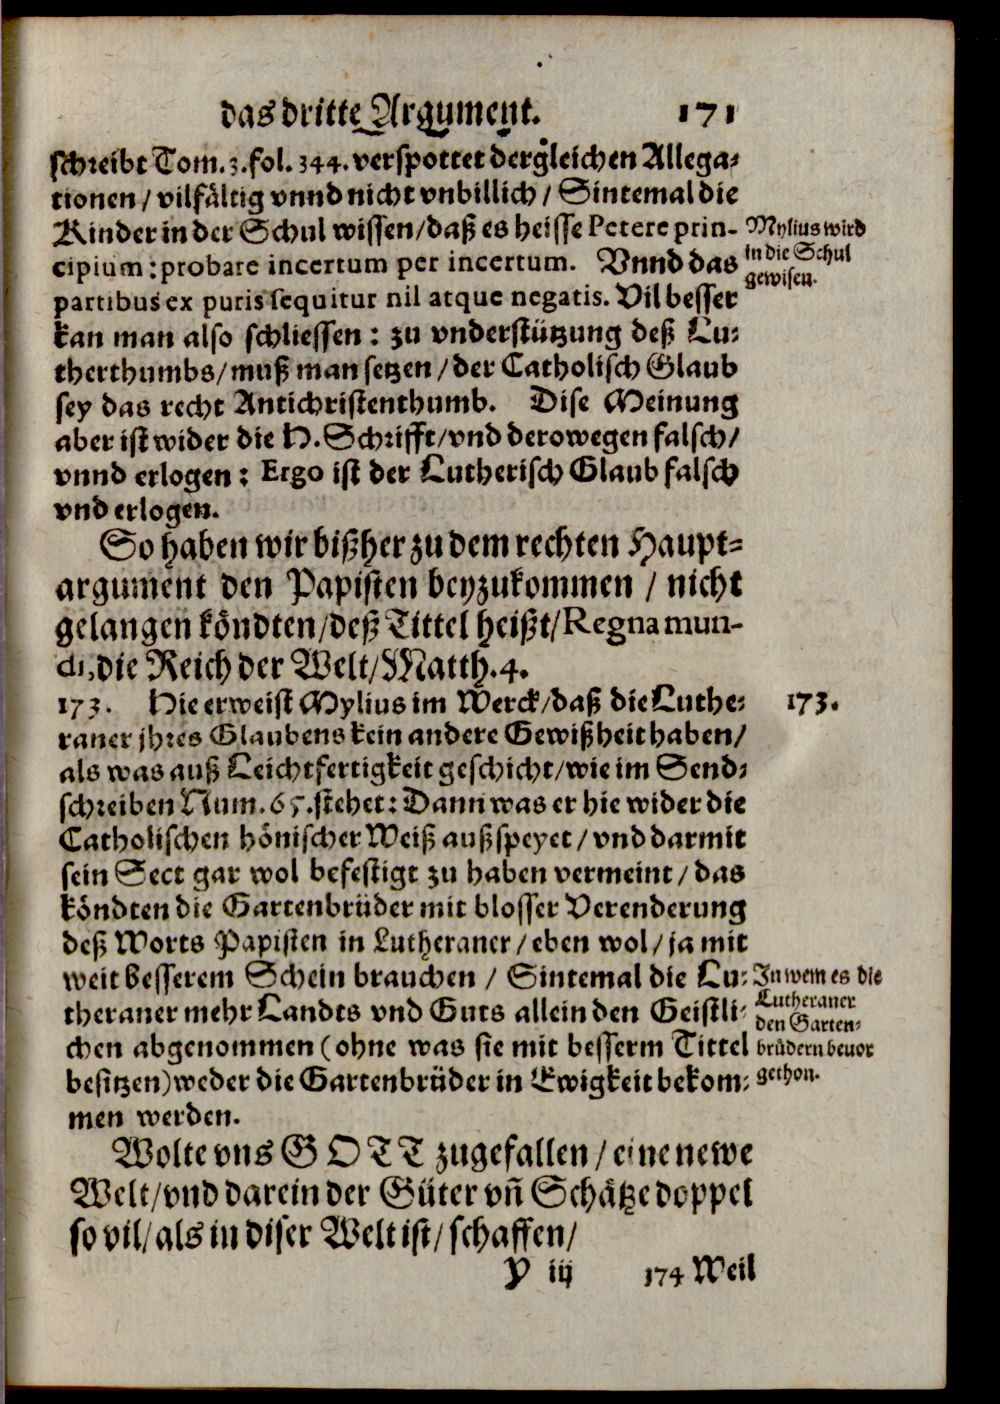 das dritte Argument. 171
schreibt Tom.3.fol.344.verspottet dergleichen Allega-
tionen / vilfältig vnnd nicht vnbillich / Sintemal die
Kinder in der Schul wissen/daß es heisse Petere prin-
cipium: probare incertum per incertum. Vnnd das
partibus ex puris sequitur nil atque negatis. Vil besser
kan man also schliessen: zu vnderstützung deß Lu-
therthumbs/muß man setzen/der Catholisch Glaub
sey das recht Antichristenthumb. Dise Meinung
aber ist wider die H. Schrifft/vnd derowegen falsch/
vnnd erlogen: Ergo ist der Lutherisch Glaub falsch
vnd erlogen.
Mylius wird
in die Schul
gewisen.
So haben wir bißher zu dem rechten Haupt-
argument den Papisten beyzukommen / nicht
gelangen köndten/deß Tittel heißt/Regna mun-
di, die Reich der Welt/Matth.4.
173. Hie erweist Mylius im Werck/daß die Luthe-
raner jhres Glaubens kein andere Gewißheit haben/
als was auß Leichtfertigkeit geschicht/wie im Send-
schreiben Num.65.stehet: Dann was er hie wider die
Catholischen hönischer Weiß außspeyet/vnd darmit
sein Sect gar wol befestigt zu haben vermeint/das
köndten die Gartenbrüder mit blosser Verenderung
deß Worts Papisten in Lutheraner/eben wol/ja mit
weit besserem Schein brauchen / Sintemal die Lu-
theraner mehr Landts vnd Guts allein den Geistli-
chen abgenommen (ohne was sie mit besserm Tittel
besitzen) weder die Gartenbrüder in Ewigkeit bekom-
men werden.
173.
In wem es die
Lutheraner
den Garten-
brüdern beuor
gethon.
Wolte vns GOTT zugefallen / eine newe
Welt/vnd darein der Güter vñ Schätze doppel
so vil/als in diser Welt ist/schaffen/
Y iij 174 Weil